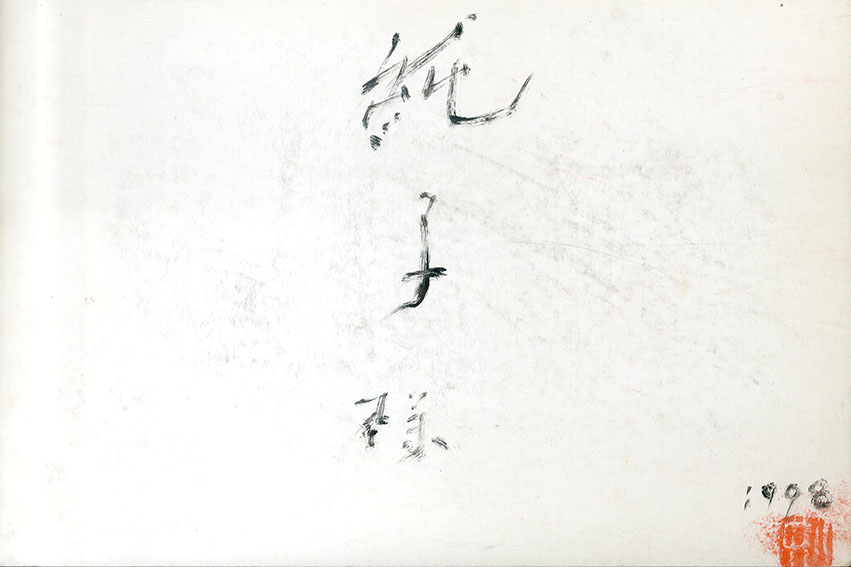 純子様
1998